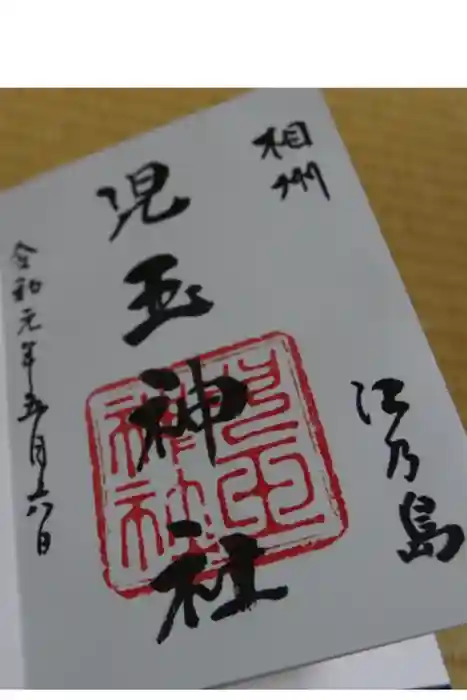 相州
江乃島
児玉神社
令和元年五月六日
児玉神社